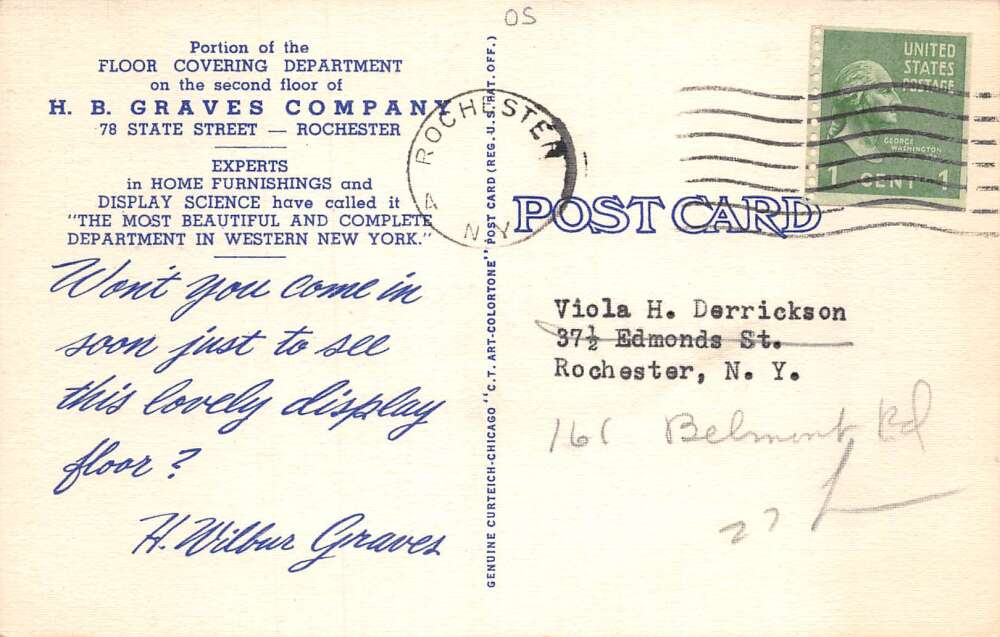 OS
Portion of the
FLOOR COVERING DEPARTMENT
on the second floor of
H. B. GRAVES COMPANY
78 STATE STREET — ROCHESTER
EXPERTS
in HOME FURNISHINGS and
DISPLAY SCIENCE have called it
"THE MOST BEAUTIFUL AND COMPLETE
DEPARTMENT IN WESTERN NEW YORK."
Won't you come in
soon just to see
this lovely display
floor?
H. Wilbur Graves
GENUINE CURTEICH-CHICAGO "C.T. ART-COLORTONE" POST CARD (REG. U.S. PAT. OFF.)
ROCHESTER
4
N Y
UNITED
STATES
POSTAGE
GEORGE
WASHINGTON
1 CENT 1
POST CARD
Viola H. Derrickson
37½ Edmonds St.
Rochester, N. Y.
161 Belmont Rd
27